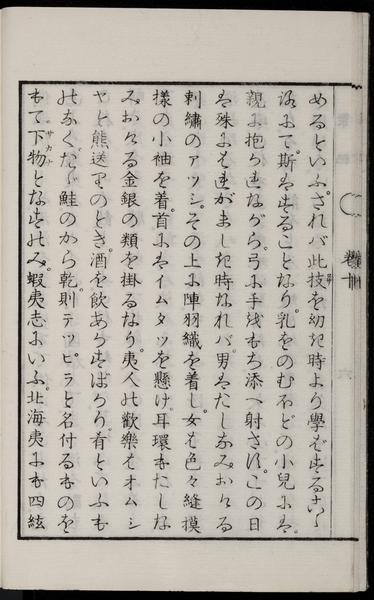 めるといふ。されバ此技を幼き時より學ばすること
斯はすることなり。乳をのむほどの小兒には。
親に抱かれながら。弓に手をもち添へ射さす。この日
は殊にはれがましき時なれバ。男はたしなみおける
刺繡のアツシ。その上に陣羽織を着し。女は色々縫摸
樣の小袖を着。首にはイムタツを懸け。耳環もたしな
みおける金銀の類を掛るなり。夷人の歡樂はオムシ
ヤと熊送りのとき。酒を飲あかすばかり。肴といふも
のなく。たゞ鮭のから乾。則テツヒラと名付るものを
もて下物となすのみ。蝦夷志にいふ。北海夷にも四絃
サカナ